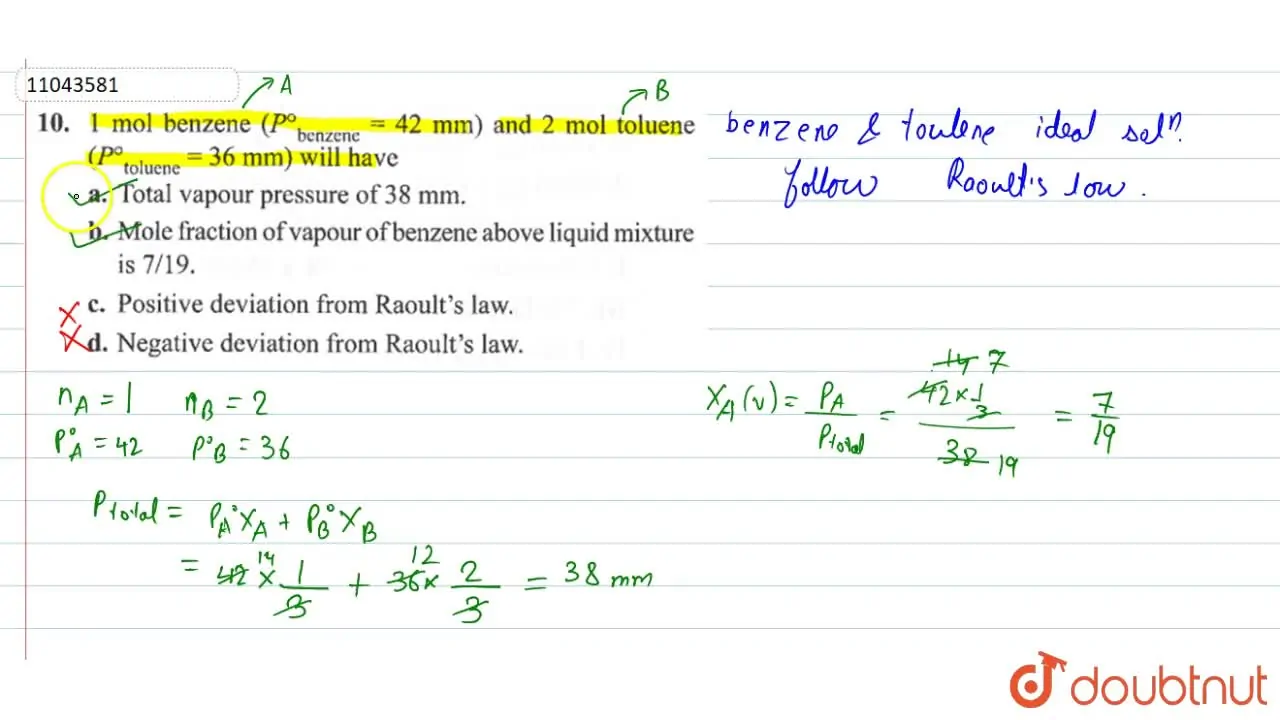 11043581
A
B
10. 1 mol benzene (P°benzene = 42 mm) and 2 mol toluene
(P°toluene = 36 mm) will have
a. Total vapour pressure of 38 mm.
b. Mole fraction of vapour of benzene above liquid mixture
is 7/19.
c. Positive deviation from Raoult's law.
d. Negative deviation from Raoult's law.
benzene & toulene ideal solⁿ.
follow Raoult's low.
nA = 1 nB = 2
P°A = 42 P°B = 36
Ptotal = PA°XA + PB°XB
= 42 14 × 1/3 + 36 12 × 2/3 = 38 mm
XA(v) = PA/Ptotal = 42 14 7 × 1/3 / 38 19 = 7/19
doubtnut